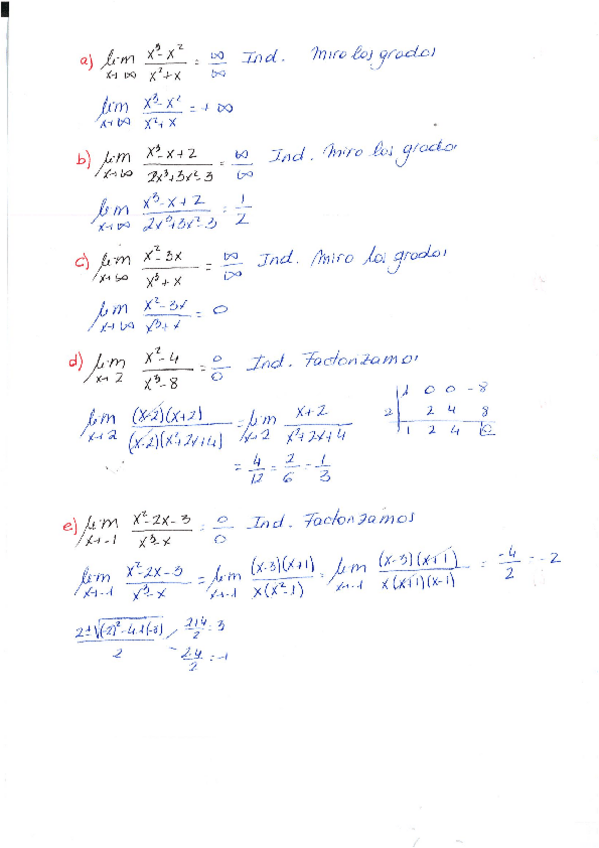 a) lim x→∞ (x³-x²)/(x²+x) = ∞/∞ Ind. Miro los grados
lim x→∞ (x³-x²)/(x²+x) = +∞
b) lim x→∞ (x³-x+2)/(2x³+3x²-3) = ∞/∞ Ind. Miro los grados
lim x→∞ (x³-x+2)/(2x³+3x²-3) = 1/2
c) lim x→∞ (x²-3x)/(x³+x) = ∞/∞ Ind. Miro los grados
lim x→∞ (x²-3x)/(x³+x) = 0
d) lim x→2 (x²-4)/(x³-8) = 0/0 Ind. Factorizamos
lim x→2 ((x-2)(x+2))/((x-2)(x²+2x+4)) = lim x→2 (x+2)/(x²+2x+4)
= 4/12 = 2/6 = 1/3
1 0 0 -8
2 2 4 8
1 2 4 0
e) lim x→-1 (x²-2x-3)/(x³-x) = 0/0 Ind. Factorizamos
lim x→-1 (x²-2x-3)/(x³-x) = lim x→-1 ((x-3)(x+1))/(x(x²-1)) = lim x→-1 ((x-3)(x+1))/(x(x+1)(x-1)) = -4/2 = -2
(2±√((-2)²-4·1·(-3)))/2
(2+4)/2 = 3
(2-4)/2 = -1